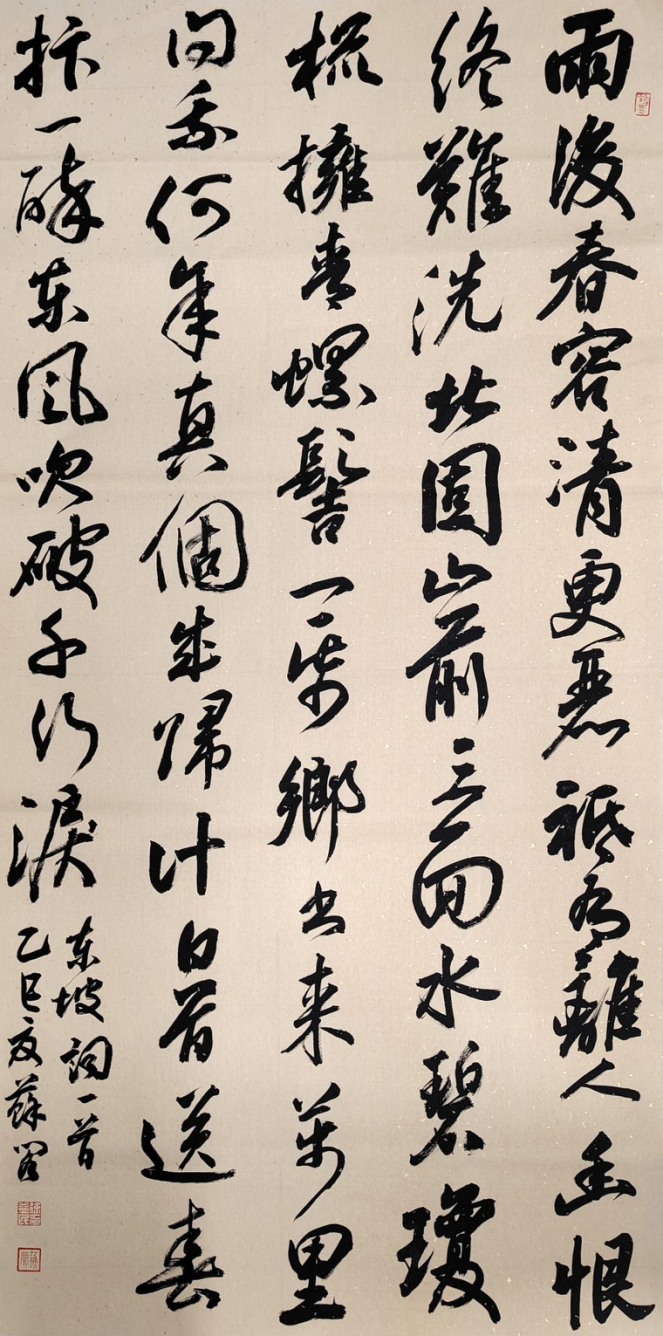 雨後春容清更麗祗有離人幽恨
終難洗北固山前三面水碧瓊
梳擁青螺髻一紙鄉書來萬里
問我何年真個成歸計白首送春
拚一醉東風吹破千行淚
東坡詞一首
乙巳夏蘇